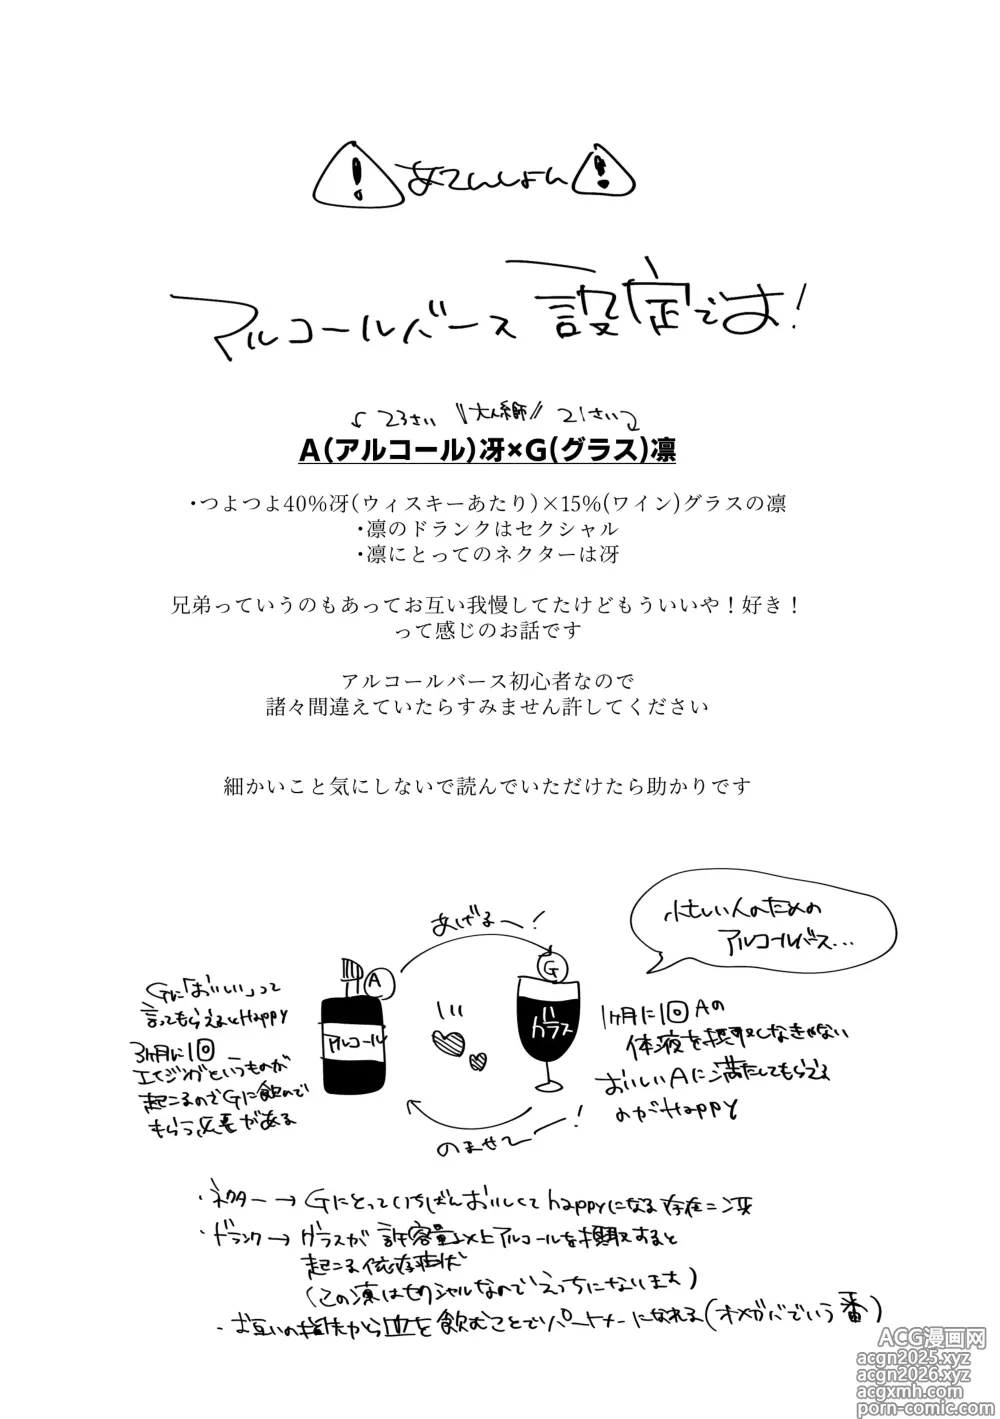 あてんしょん
アルコールバース設定です!
23さい \\大人糸師// 21さい
A(アルコール)冴×G(グラス)凛
・つよつよ40%冴(ウィスキーあたり)×15%(ワイン)グラスの凛
・凛のドランクはセクシャル
・凛にとってのネクターは冴
兄弟っていうのもあってお互い我慢してたけどもういいや！好き！
って感じのお話です
アルコールバース初心者なので
諸々間違えていたらすみません許してください
細かいこと気にしないで読んでいただけたら助かりです
忙しい人のための
アルコールバース...
あげるー!
A
G
Gに「おいしい」って
言ってもらえるとHappy
3ヶ月に1回
エイジングというものが
起こるのでGに飲んで
もらう必要がある
アルコール
グラス
1ヶ月に1回Aの
体液を摂取しなきゃない
おいしいAに満たしてもらえる
のがHappy
のませてー!
・ネクター→Gにとっていちばんおいしくてhappyになる存在=冴
・ドランク→グラスが許容量以上アルコールを摂取すると
起こる依存症状
(この凛はセクシャルなのでえっちになります)
・お互いの指先から血を飲むことでパートナーになれる(オメガバでいう番)
ACG漫画网
acgn2025.xyz
acgn2026.xyz
acgxmh.com
porn-comic.com